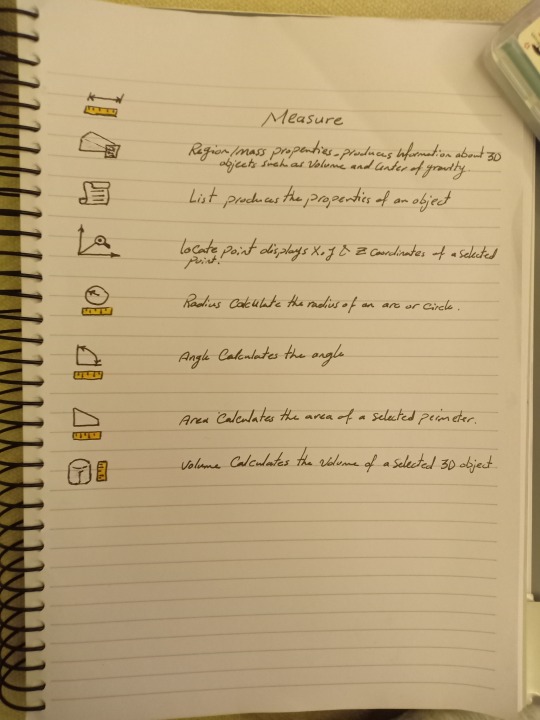 Measure
Region/mass properties - produces Information about 3D
objects such as Volume and Center of gravity
List produces the properties of an object
Locate point displays X, y & Z Coordinates of a selected
point.
Radius Calculate the radius of an arc or circle.
Angle Calculates the angle
Area Calculates the area of a selected perimeter.
Volume Calculates the Volume of a selected 3D object